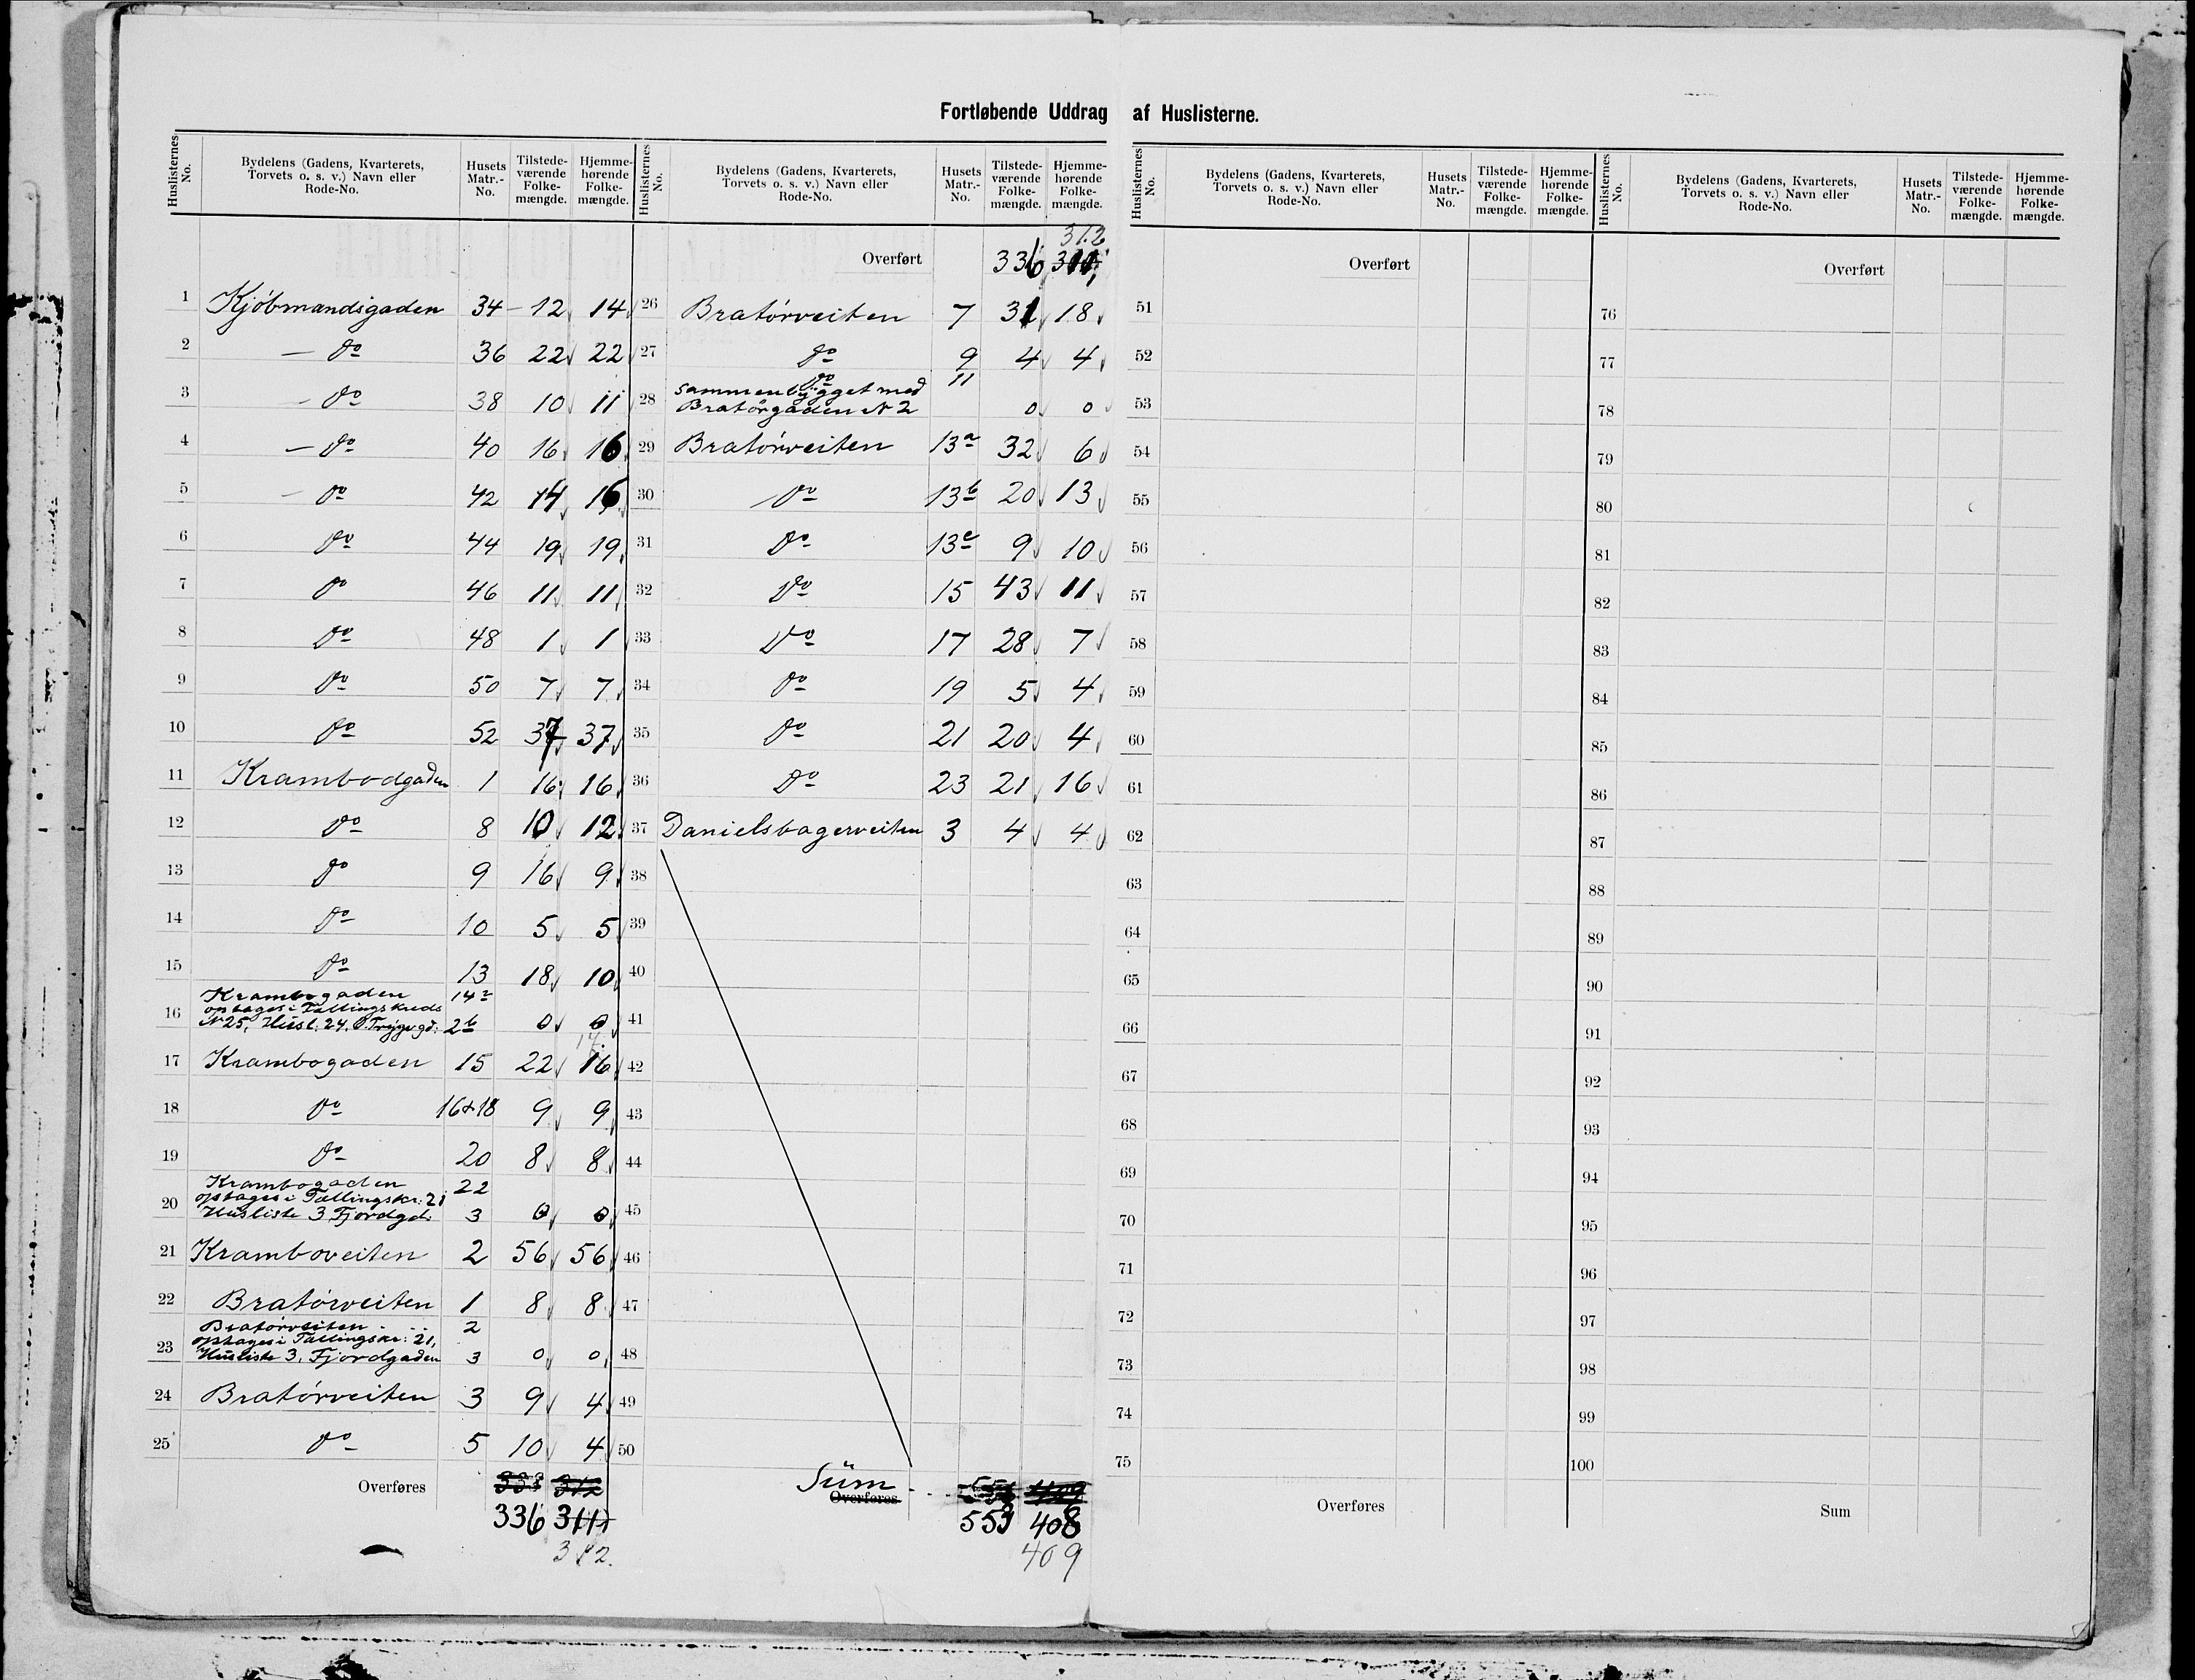 Fortløbende Uddrag af Huslisterne.
Huslisternes No. Bydelens (Gadens, Kvarterets, Torvets o. s. v.) Navn eller Rode-No. Husets Matr.-No. Tilstedeværende Folkemængde. Hjemmehørende Folkemængde.
1 Kjöbmandsgaden 34 12 14
2 do 36 22 22
3 do 38 10 11
4 do 40 16 16
5 do 42 14 16
6 do 44 19 19
7 do 46 11 11
8 do 48 1 1
9 do 50 7 7
10 do 52 37 37
11 Krambodgaden 1 16 16
12 do 8 10 12
13 do 9 16 9
14 do 10 5 5
15 do 13 18 10
Krambogaden 14a
optages i Tællingskreds
16 N 25, Husl: 24, O. Trygv gd: 2b 0 0
17.
17 Krambogaden 15 22 16
18 do 16+18 9 9
19 do 20 8 8
Krambogaden 22
optages i Tællingskr: 21
20 Husliste 3 Fjordgd: 3 0 0
21 Kramboveiten 2 56 56
22 Bratörveiten 1 8 8
Bratörveiten 2
optages i Tællingskr: 21,
23 Husliste 3, Fjordgaden 3 0 0
24 Bratörveiten 3 9 4
25 do 5 10 4
Overføres 312
336 311
312.
Huslisternes No. Bydelens (Gadens, Kvarterets, Torvets o. s. v.) Navn eller Rode-No. Husets Matr.-No. Tilstedeværende Folkemængde. Hjemmehørende Folkemængde.
312
Overført 336 311
26 Bratörveiten 7 31 18
27 do 9 4 4
do 11
sammenbygget med
28 Bratörgaden N 2 0 0
29 Bratörveiten 13a 32 6
30 do 13b 20 13
31 do 13c 9 10
32 do 15 43 11
33 do 17 28 7
34 do 19 5 4
35 do 21 20 4
36 do 23 21 16
37 Danielsbagerveiten 3 4 4
38
39
40
41
42
43
44
45
46
47
48
49
50
Süm
Overføres 409
553 408
409
Huslisternes No. Bydelens (Gadens, Kvarterets, Torvets o. s. v.) Navn eller Rode-No. Husets Matr.-No. Tilstedeværende Folkemængde. Hjemmehørende Folkemængde.
Overført
51
52
53
54
55
56
57
58
59
60
61
62
63
64
65
66
67
68
69
70
71
72
73
74
75
Overføres
Huslisternes No. Bydelens (Gadens, Kvarterets, Torvets o. s. v.) Navn eller Rode-No. Husets Matr.-No. Tilstedeværende Folkemængde. Hjemmehørende Folkemængde.
Overført
76
77
78
79
80
81
82
83
84
85
86
87
88
89
90
91
92
93
94
95
96
97
98
99
100
Sum